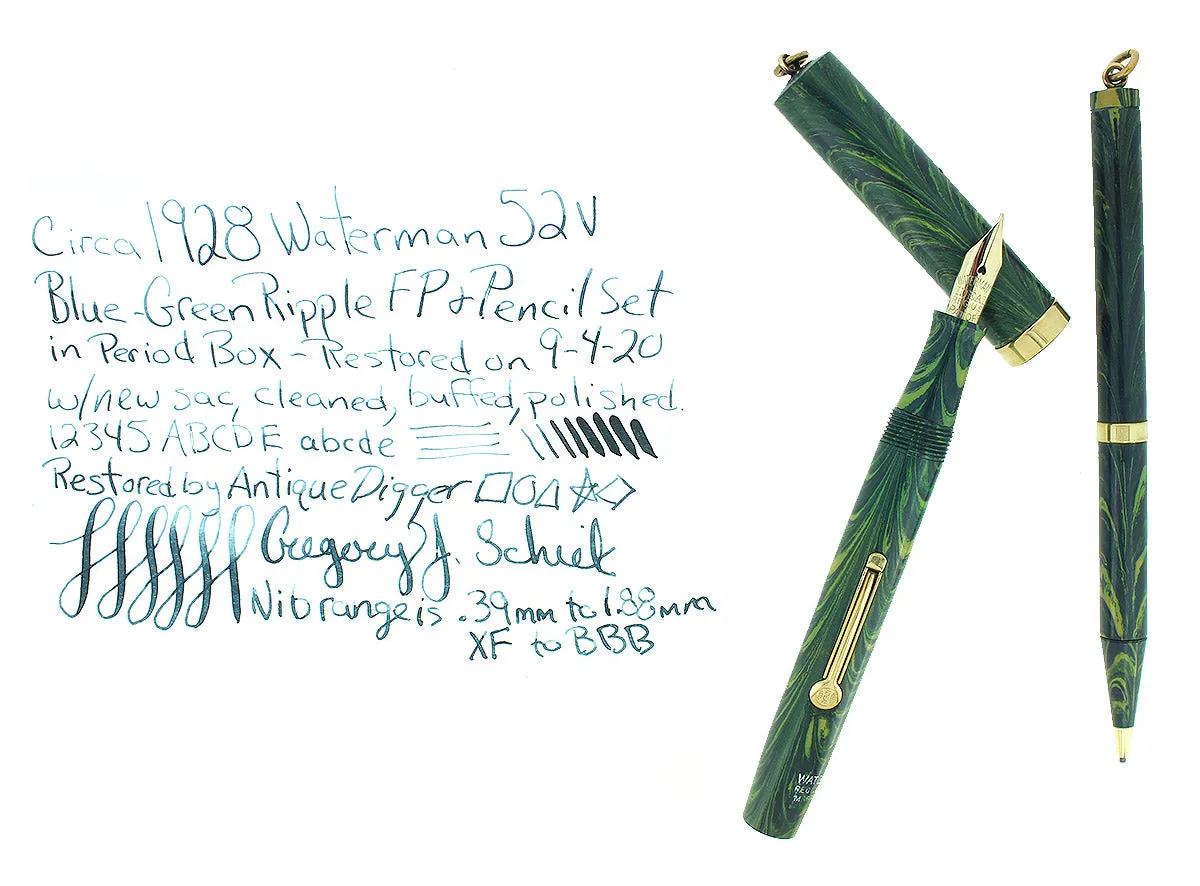 Circa 1928 Waterman 52V
Blue-Green Ripple FP & Pencil Set
in Period Box - Restored on 9-4-20
w/new sac, cleaned, buffed, polished.
12345 ABCDE abcde
Restored by Antique Digger
Gregory J.
Nib range is .39mm to 1.88mm
XF to BBB